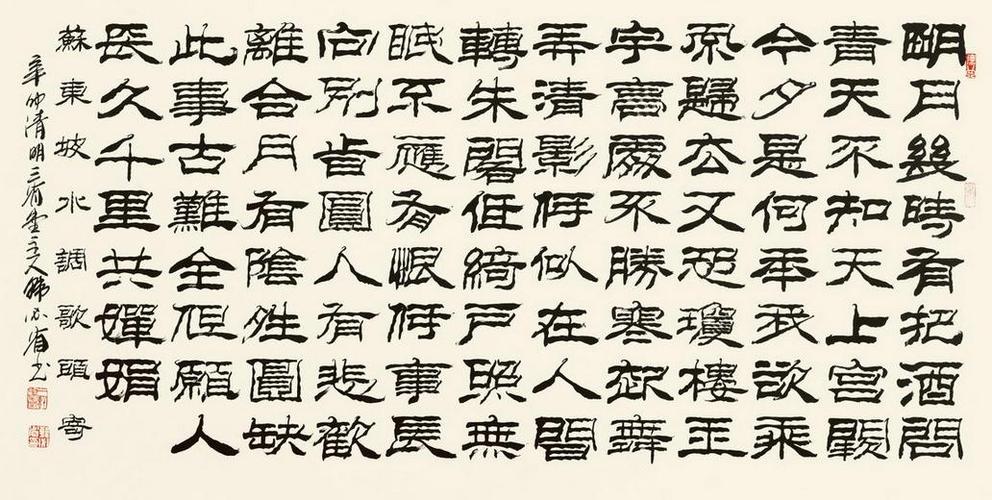 明月幾時有把酒問
青天不知天上宮闕
今夕是何年我欲乘
風歸去又恐瓊樓玉
宇高處不勝寒起舞
弄清影何似在人間
轉朱閣低綺戶照無
眠不應有恨何事長
向別時圓人有悲歡
離合月有陰晴圓缺
此事古難全但願人
長久千里共嬋娟
蘇東坡水調歌頭寄
辛卯清明三省堂主人